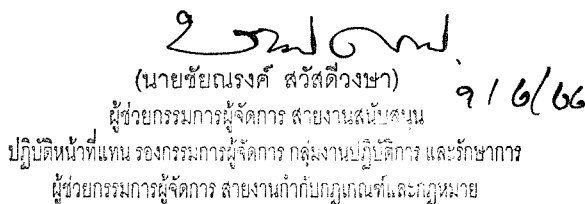 (นายชัยณรงค์ สวัสดีวงษา)
ผู้ช่วยกรรมการผู้จัดการ สายงานสนับสนุน
ปฏิบัติหน้าที่แทน รองกรรมการผู้จัดการ กลุ่มงานปฏิบัติการ และรักษาการ
ผู้ช่วยกรรมการผู้จัดการ สายงานกำกับกฎเกณฑ์และกฎหมาย